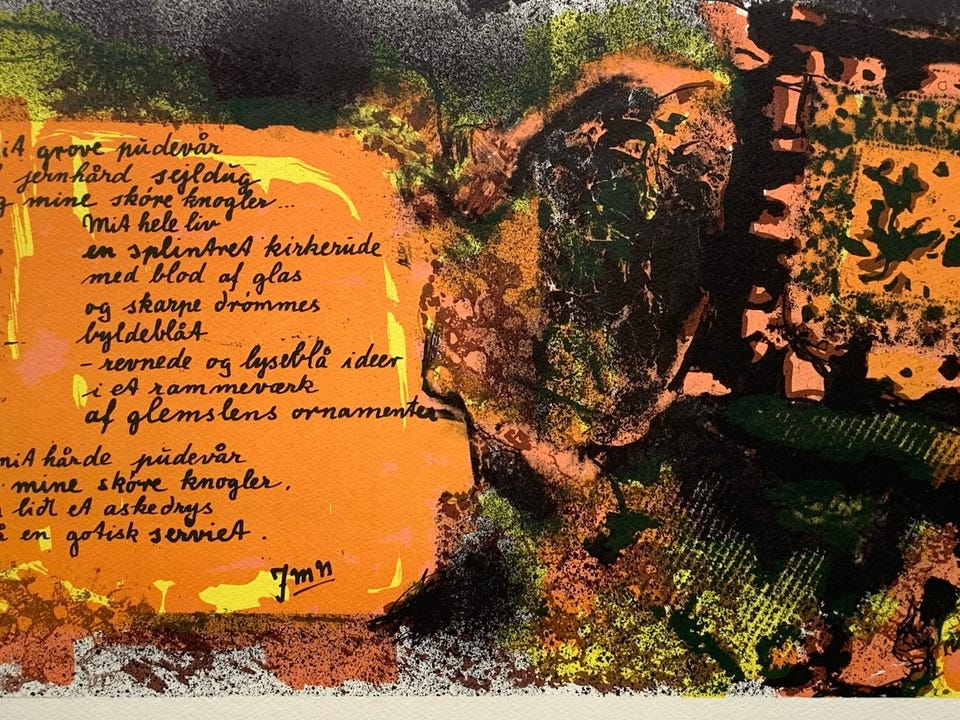 mit grove pudevår
jernhård sejldug
og mine skøre knogler...
Mit hele liv
en splintret kirkerude
med blod af glas
og skarpe drømmes
byldeblåt
- revnede og lyseblå ideer
i et rammeværk
af glemslens ornamenter
mit hårde pudevår
mine skøre knogler.
lidt et askedrys
på en gotisk serviet.
JMN